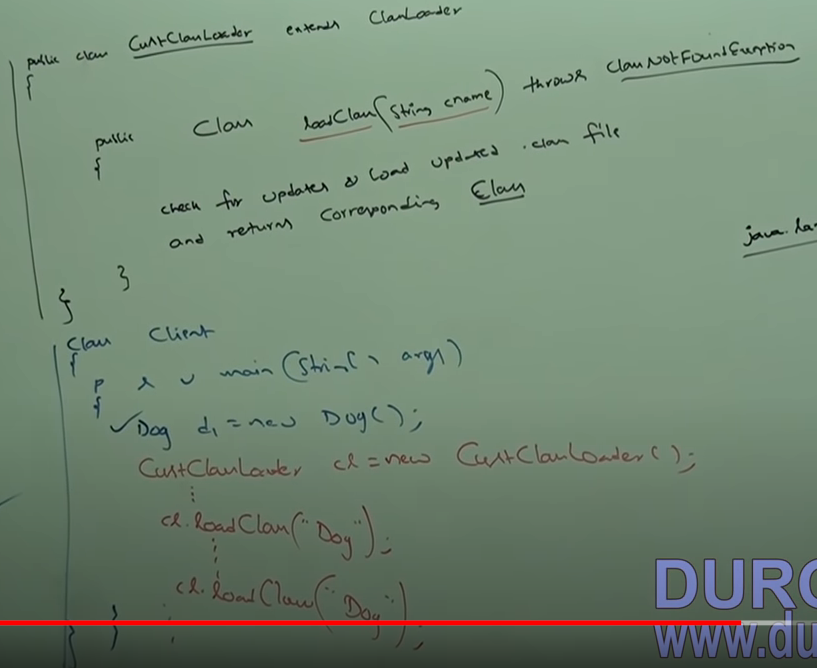 public class CustClassLoader extends ClassLoader
{
public Class loadClass(String cname) throws ClassNotFoundException
{
check for updates & load updated .class file
and returns corresponding Class
java.la
}
}
class Client
{
p s v main(String[] args)
{
✓Dog d1 = new Dog();
CustClassLoader cl = new CustClassLoader();
⋮
cl.loadClass("Dog");
⋮
cl.loadClass("Dog");
⋮
}
}
DURG
www.du